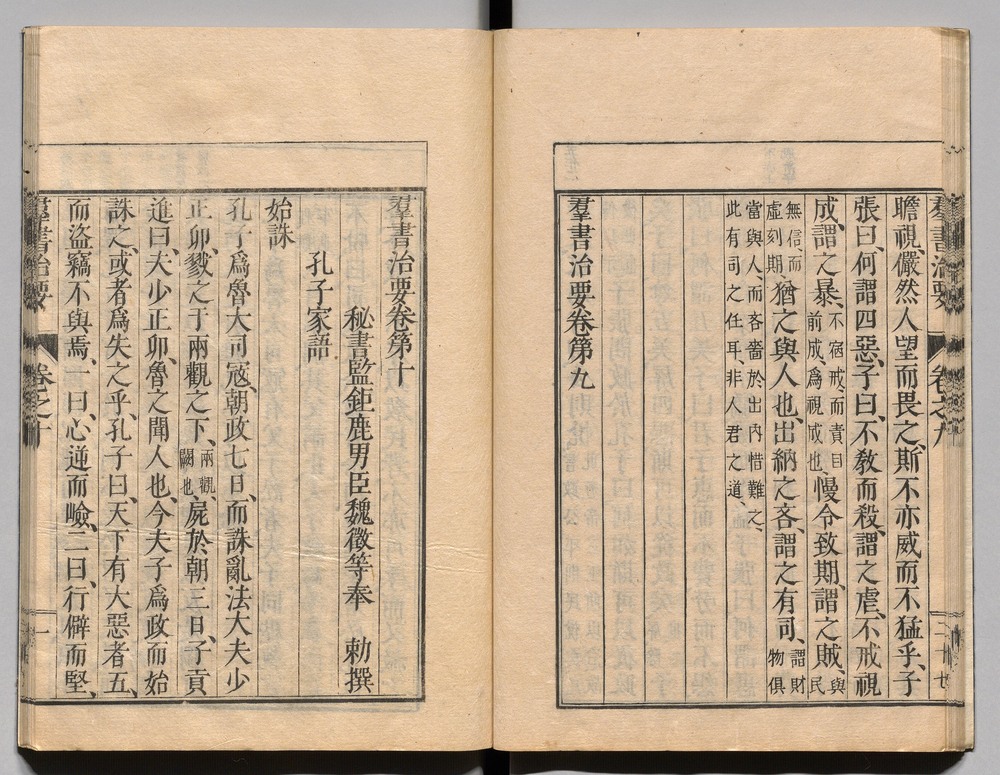 羣書治要 卷之九
瞻視儼然人望而畏之、斯不亦威而不猛乎、子
張曰、何謂四惡、子曰、不敎而殺、謂之虐、不戒視
成、謂之暴、不宿戒、而責目前成、爲視成也、慢令致期、謂之賊、與民
無信、而虛刻期、猶之與人也、出納之吝、謂之有司、謂財物俱
當與人、而吝嗇於出內惜難之、
此有司之任耳、非人君之道、
羣書治要卷第九
羣書治要卷第十
秘書監鉅鹿男臣魏徵等奉 勅撰
孔子家語
始誅
孔子爲魯大司寇、朝政七日、而誅亂法大夫少
正卯、戮之于兩觀之下、兩觀、闕也、屍於朝三日、子貢
進曰、夫少正卯、魯之聞人也、今夫子爲政而始
誅之、或者爲失之乎、孔子曰、天下有大惡者五、
而盜竊不與焉、一曰、心逆而嶮、二曰、行僻而堅、
羣書治要 卷之十 一